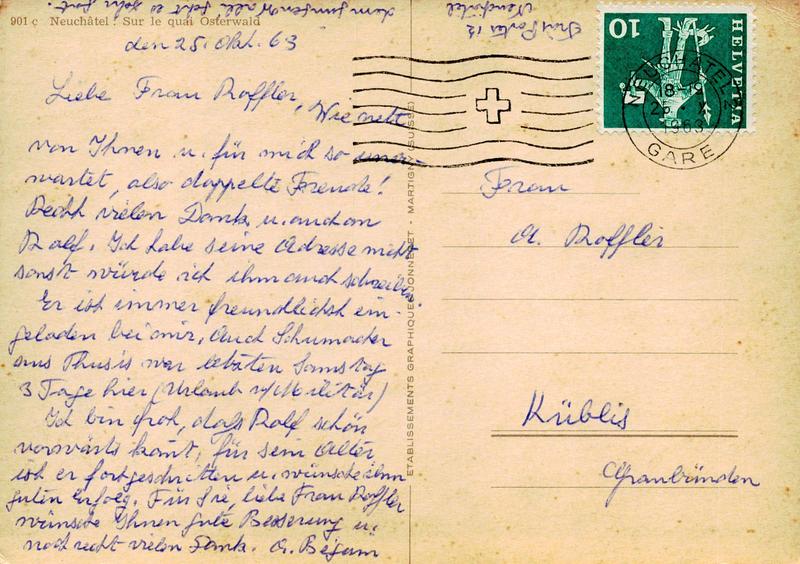 901 c Neuchâtel : Sur le quai Osterwald
den 25. Okt. 63
Liebe Frau Roffler, Wie nett
von Ihnen u. für mich so uner-
wartet, also doppelte Freude!
Recht vielen Dank u. auch an
Rolf. Ich habe seine Adresse nicht
sonst würde ich ihm auch schreiben.
Er ist immer freundlichst ein-
geladen bei mir. Auch Schumacher
aus Thusis war letzten Samstag
3 Tage hier (Urlaub v/Militär)
Ich bin froh, dass Rolf schön
vorwärts kommt, für sein Alter
ist er fortgeschritten u. wünsche ihm
guten Erfolg. Für Sie, liebe Frau Roffler
wünsche Ihnen gute Besserung u.
noch recht vielen Dank. A. Bégam
geht es sehr gut.
Neuchâtel
ETABLISSEMENTS GRAPHIQUES JONNERET - MARTIGNY (SUISSE)
HELVETIA
10
NEUCHÂTEL 2
18-19
25. X.
1963
GARE
Frau
A. Roffler
Küblis
Graubünden